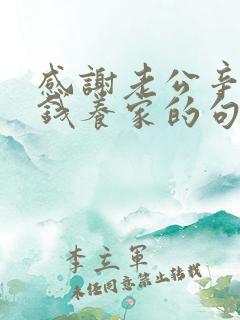 感謝老公辛
錢養家的句
李立軍
未经同意禁止转载